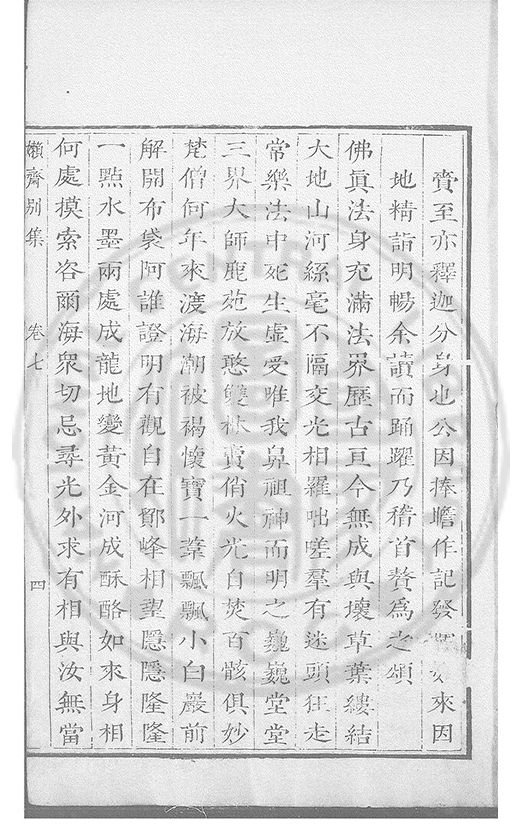 賫至亦釋迦分身也公因捧瞻作記發來因
地精詣明暢余讀而踊躍乃稽首贅為之頌
佛眞法身充滿法界歷古亘今無成與壞草葉縷結
大地山河絲毫不隔交光相羅咄嗟羣有迷頭狂走
常樂法中死生虛受唯我鼻祖神而明之巍巍堂堂
三界大師鹿苑放憨雙林賣俏火光自焚百骸俱妙
梵僧何年來渡海潮被褐懷寶一葦飄飄小白巖前
解開布袋阿誰證明有觀自在鄮峰相望隱隱隆隆
一㸃水墨兩處成龍地變黃金河成酥酪如來身相
何處摸索咨爾海衆切忌尋光外求有相與汝無當
嬾齋别集 卷七 四